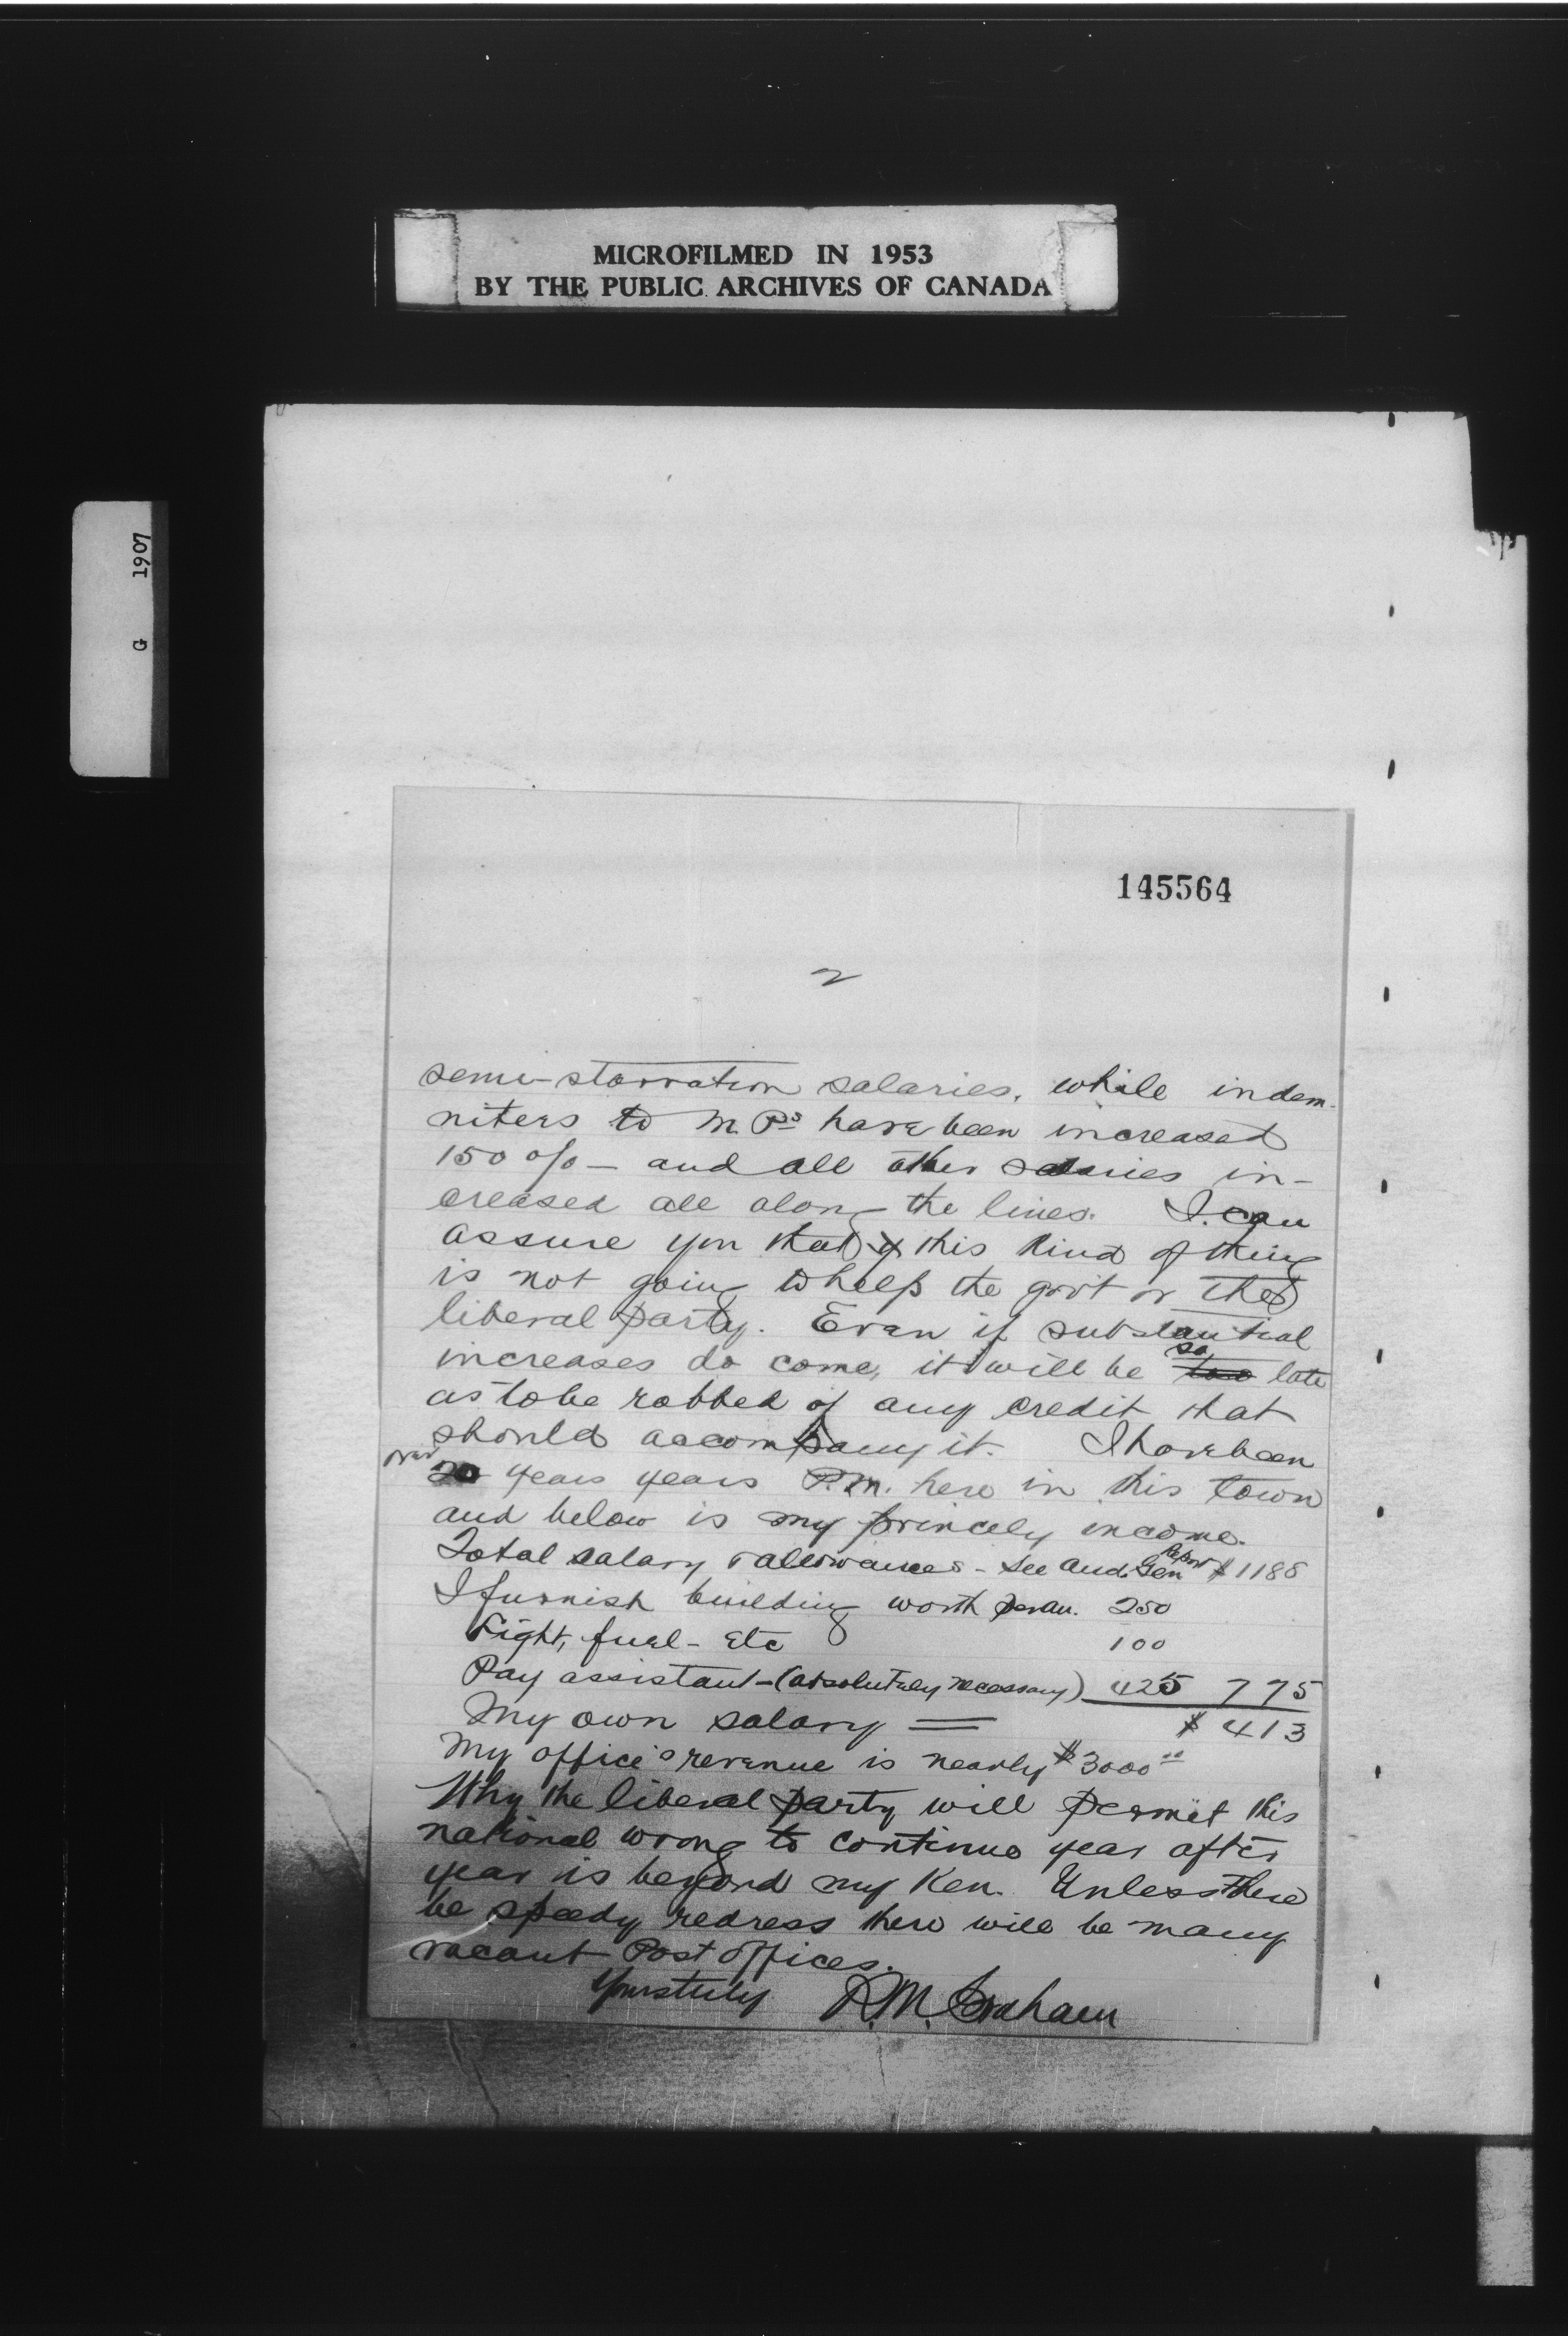 MICROFILMED IN 1953
BY THE PUBLIC ARCHIVES OF CANADA
G 1907
145564
2
semi-starvation salaries, while indem-
nities to M.Ps have been increased
150 o/o - and all other salaries in-
creased all along the lines. I can
assure you that this kind of thing
is not going to help the gov't or the
liberal party. Even if substantial
increases do come, it will be so late
as to be robbed of any credit that
should accompany it. I have been
over 20 years years P.M. here in this town
and below is my princely income.
Total salary & allowances - see Aud. Gen Report $1188
I furnish building worth per an. 250
Light, fuel - Etc 100
Pay assistant - (absolutely necessary) 425 775
My own salary = $413
My office's revenue is nearly $3000.00
Why the liberal party will permit this
national wrong to continue year after
year is beyond my ken. Unless there
be speedy redress there will be many
vacant Post offices.
Yours truly R.M. Graham